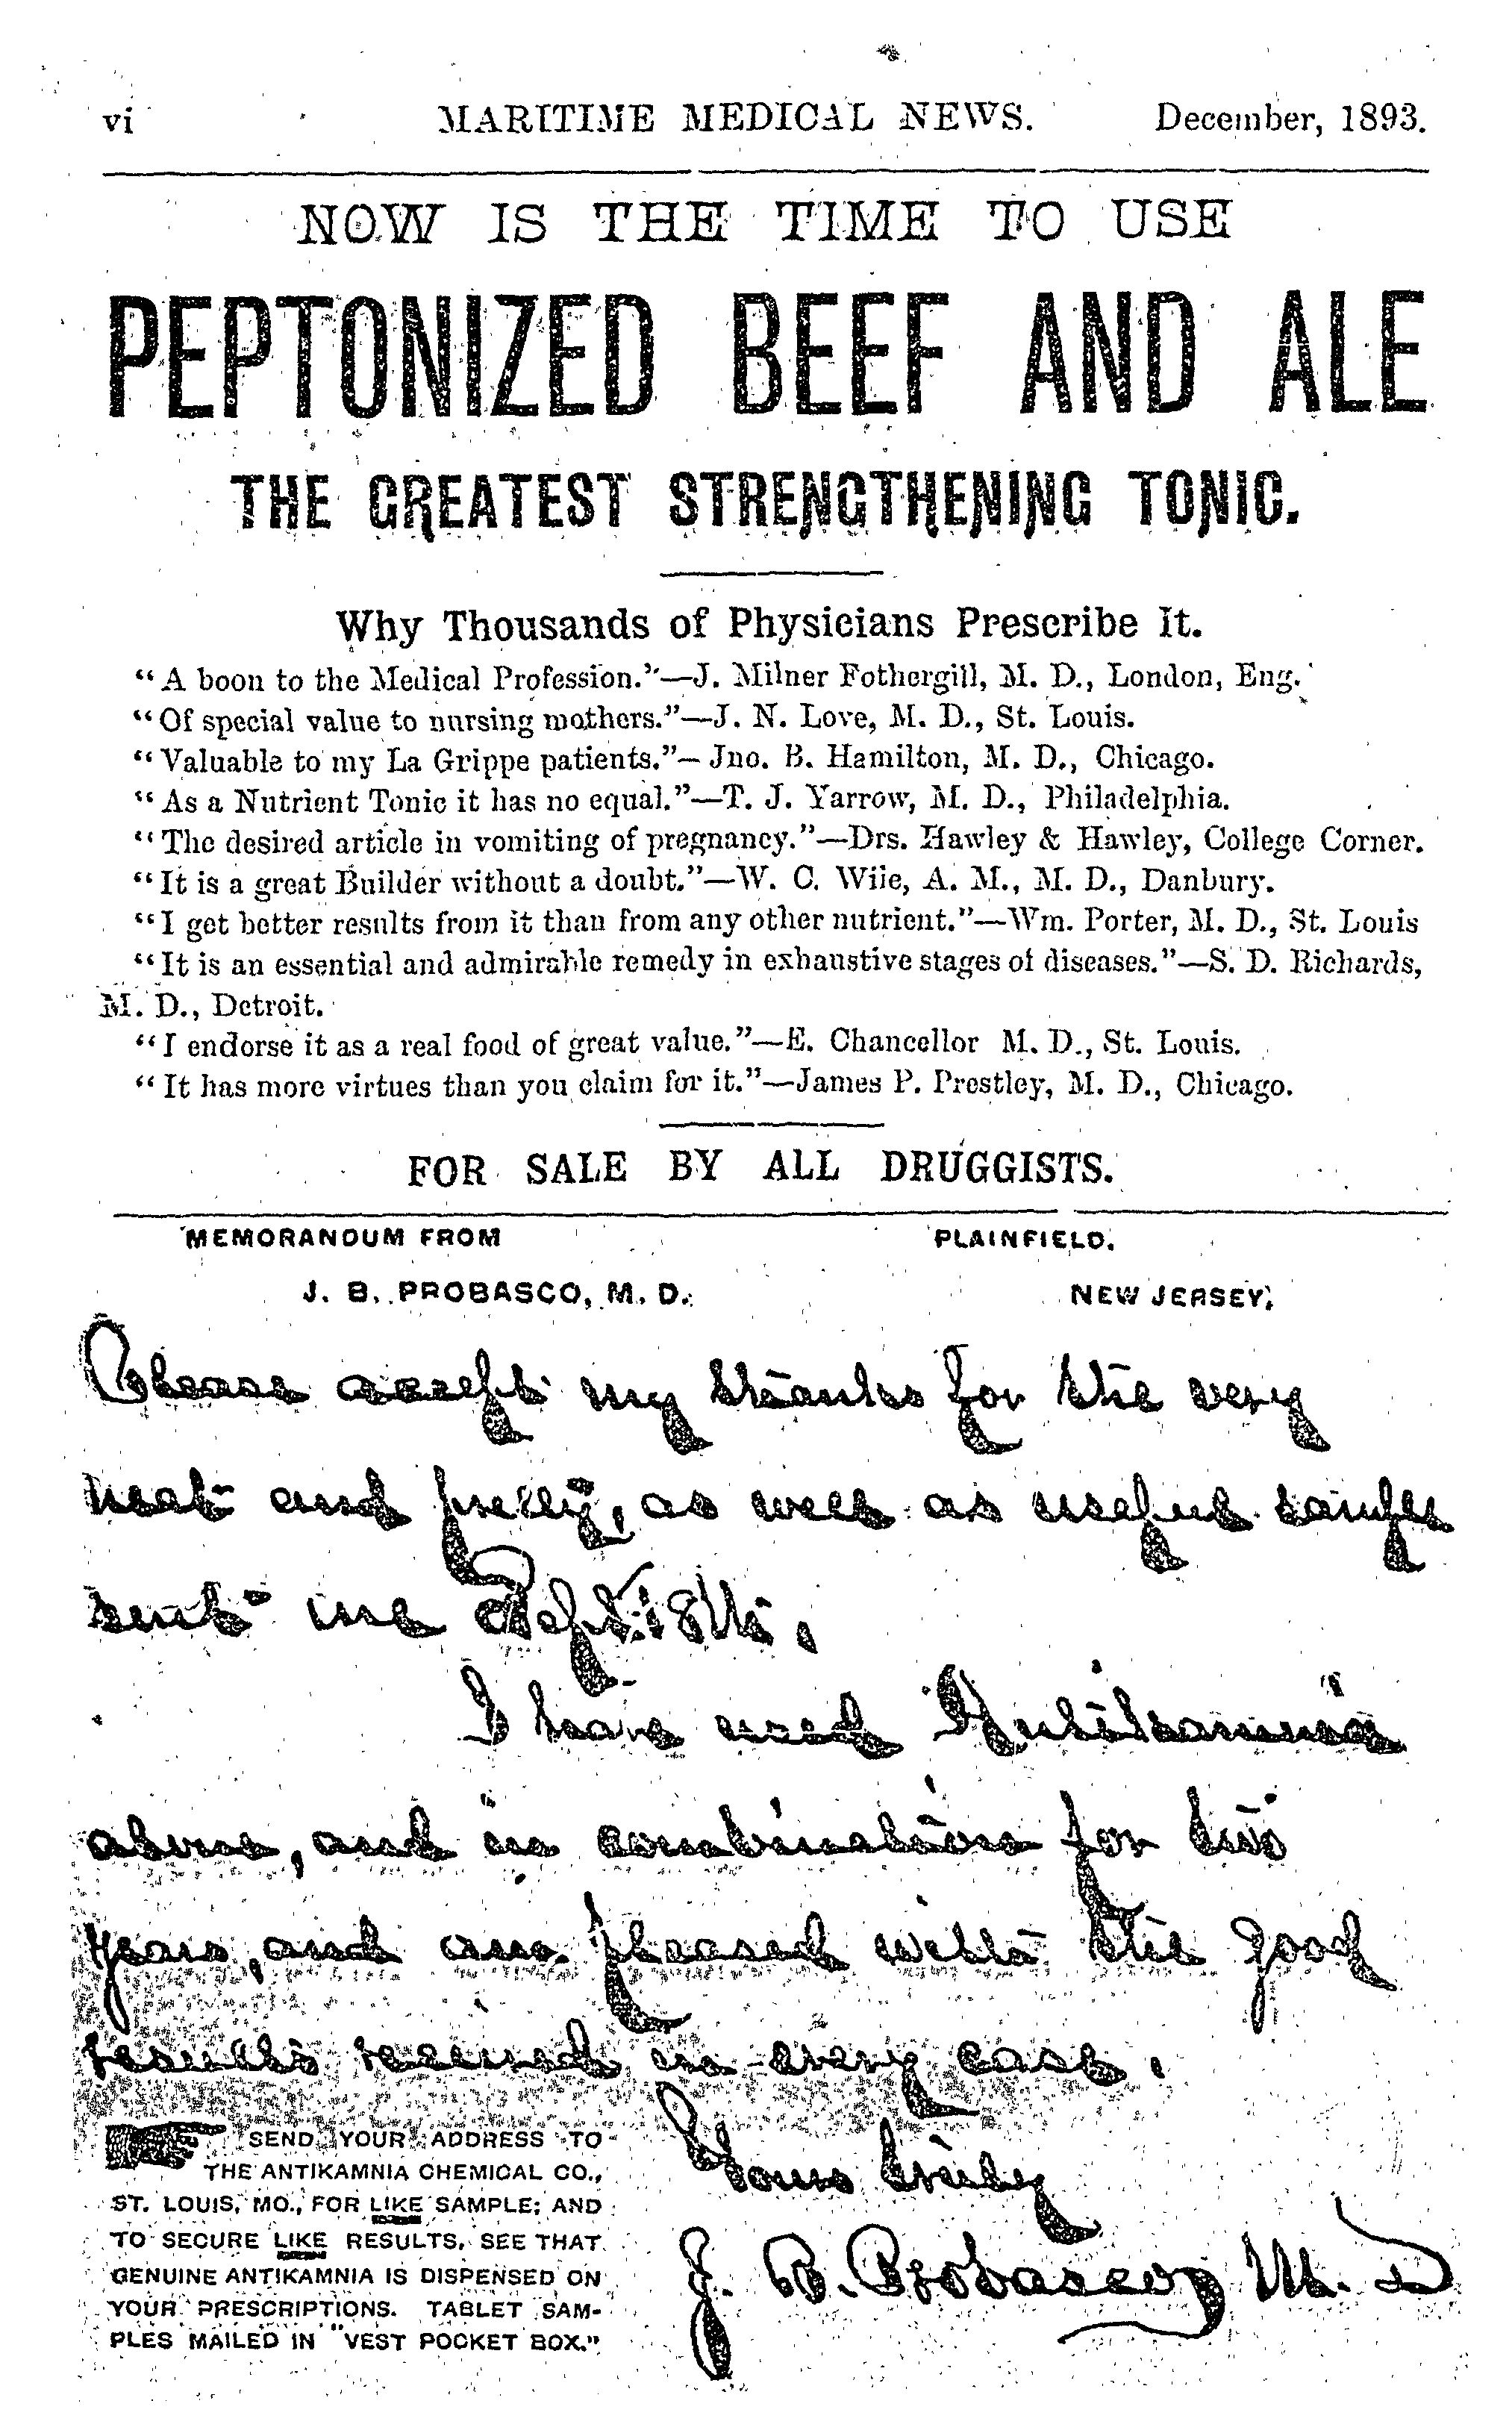 vi MARITIME MEDICAL NEWS. December, 1893.
NOW IS THE TIME TO USE
PEPTONIZED BEEF AND ALE
THE GREATEST STRENGTHENING TONIC.
Why Thousands of Physicians Prescribe It.
"A boon to the Medical Profession."—J. Milner Fothergill, M. D., London, Eng.
"Of special value to nursing mothers."—J. N. Love, M. D., St. Louis.
"Valuable to my La Grippe patients."—Jno. B. Hamilton, M. D., Chicago.
"As a Nutrient Tonic it has no equal."—T. J. Yarrow, M. D., Philadelphia.
"The desired article in vomiting of pregnancy."—Drs. Hawley & Hawley, College Corner.
"It is a great Builder without a doubt."—W. C. Wile, A. M., M. D., Danbury.
"I get better results from it than from any other nutrient."—Wm. Porter, M. D., St. Louis
"It is an essential and admirable remedy in exhaustive stages of diseases."—S. D. Richards,
M. D., Detroit.
"I endorse it as a real food of great value."—E. Chancellor M. D., St. Louis.
"It has more virtues than you claim for it."—James P. Prestley, M. D., Chicago.
FOR SALE BY ALL DRUGGISTS.
MEMORANDUM FROM PLAINFIELD,
J. B. PROBASCO, M. D. NEW JERSEY,
Please accept my thanks for the very
neat and pretty, as well as useful sample
sent me Sept. 18th.
I have used Antikamnia
alone, and in combination for two
years, and am pleased with the good
results received in every case.
Yours truly
J. B. Probasco, M. D
SEND YOUR ADDRESS TO
THE ANTIKAMNIA CHEMICAL CO.,
ST. LOUIS, MO., FOR LIKE SAMPLE; AND
TO SECURE LIKE RESULTS, SEE THAT
GENUINE ANTIKAMNIA IS DISPENSED ON
YOUR PRESCRIPTIONS. TABLET SAM-
PLES MAILED IN "VEST POCKET BOX."